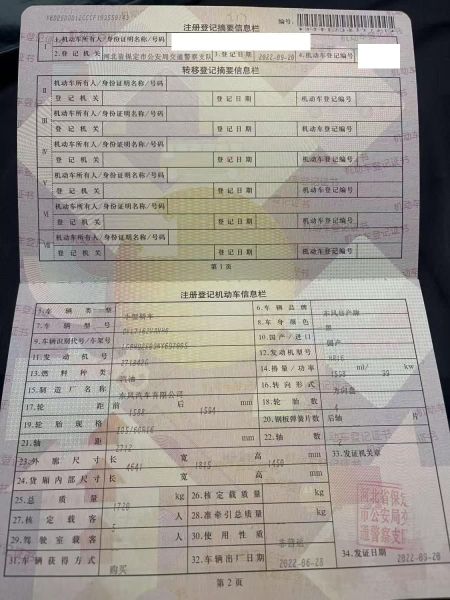 注册登记摘要信息栏
编号:
I 1.机动车所有人/身份证明名称/号码
2.登记机关 河北省保定市公安局交通警察支队 3.登记日期 2022-09-20 4.机动车登记编号
转移登记摘要信息栏
II 机动车所有人/身份证明名称/号码
登记机关 登记日期 机动车登记编号
III 机动车所有人/身份证明名称/号码
登记机关 登记日期 机动车登记编号
IV 机动车所有人/身份证明名称/号码
登记机关 登记日期 机动车登记编号
V 机动车所有人/身份证明名称/号码
登记机关 登记日期 机动车登记编号
VI 机动车所有人/身份证明名称/号码
登记机关 登记日期 机动车登记编号
VII 机动车所有人/身份证明名称/号码
登记机关 登记日期 机动车登记编号
第1页
注册登记机动车信息栏
5.车辆类型 小型轿车 6.车辆品牌 东风日产牌
7.车辆型号 8.车身颜色
9.车辆识别代号/车架号 10.国产/进口 国产
11.发动机号 12.发动机型号 HR16
13.燃料种类 汽油 14.排量/功率 ml/ kw
15.制造厂名称 东风汽车有限公司 16.转向形式 方向盘
17.轮距 前 1588 后 1594 mm 18.轮胎数
19.轮胎规格 205/60R16 20.钢板弹簧片数 后轴 片
21.轴距 2712 mm 22.轴数 33.发证机关章
23.外廓尺寸 长 4641 宽 1815 高 1450 mm
24.货厢内部尺寸 长 宽 高 mm
25.总质量 1720 kg 26.核定载质量 kg
27.核定载客 5 人 28.准牵引总质量 kg
29.驾驶室载客 人 30.使用性质 非营运
31.车辆获得方式 购买 32.车辆出厂日期 2022-06-28 34.发证日期 2022-09-20
河北省保定
市公安局交
通警察支队
第2页